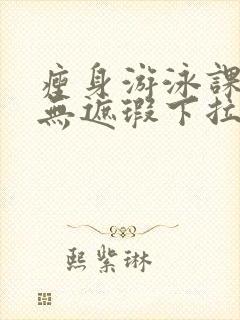 瘦身游泳課
無遮瑕下拉
熙紫琳